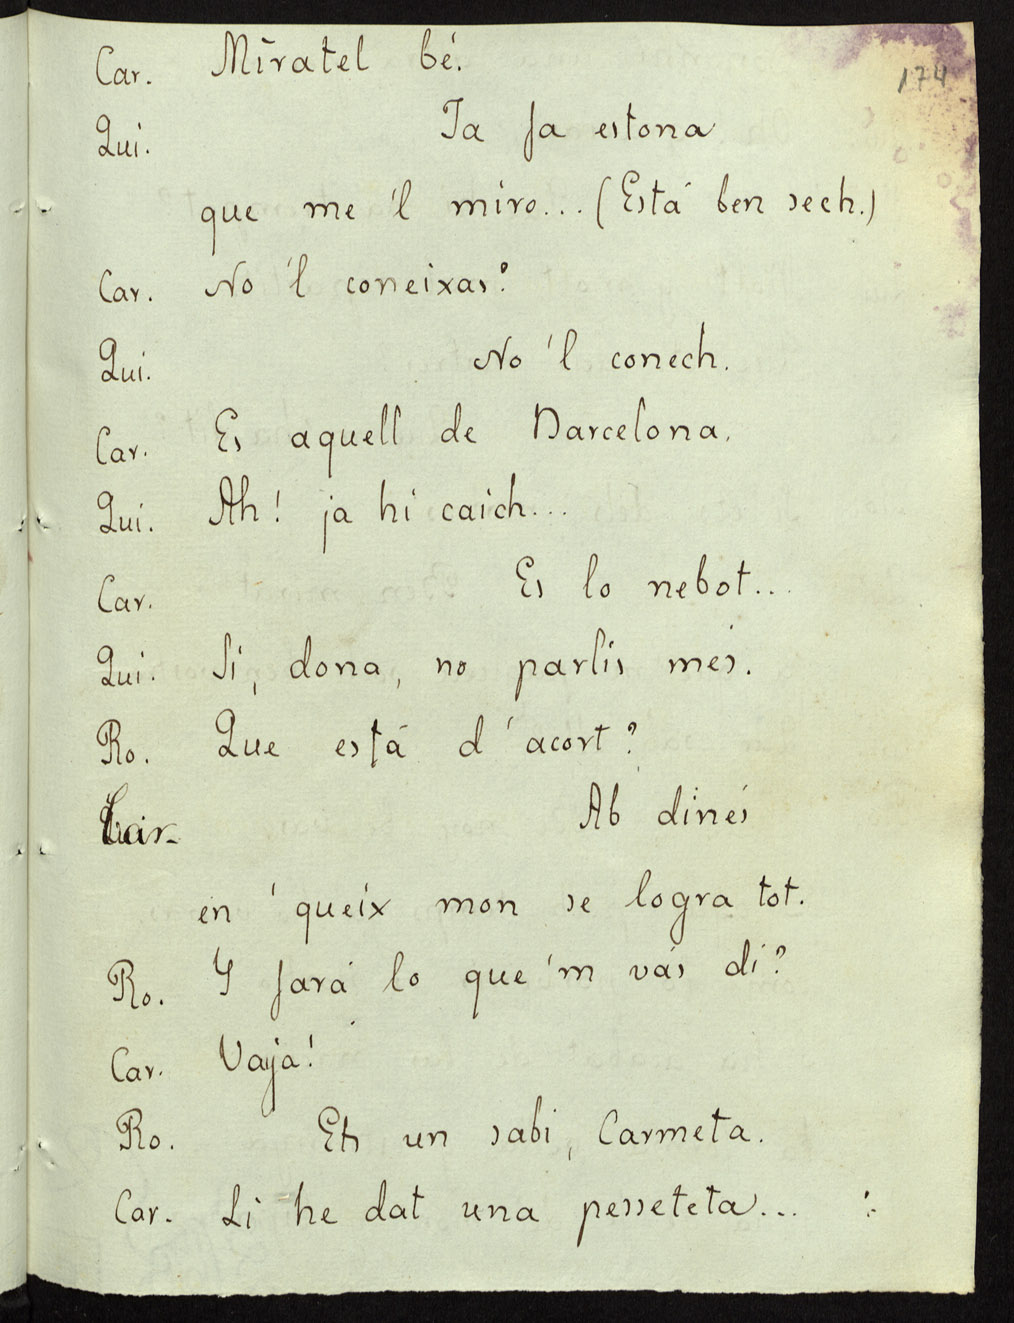 174
Car. Miratel bé.
Qui. Ja fa estona
que me 'l miro... (Está ben sech.)
Car. No 'l coneixas?
Qui. No 'l conech.
Car. Es aquell de Barcelona.
Qui. Ah! ja hi caich...
Car. Es lo nebot...
Qui. Si, dona, no parlis més.
Ro. Que está d' acort?
Car. Ab dinés
en 'queix mon se logra tot.
Ro. Y fará lo que 'm vás di?
Car. Vaja!
Ro. Ets un sabi, Carmeta.
Car. Li he dat una pesseteta...